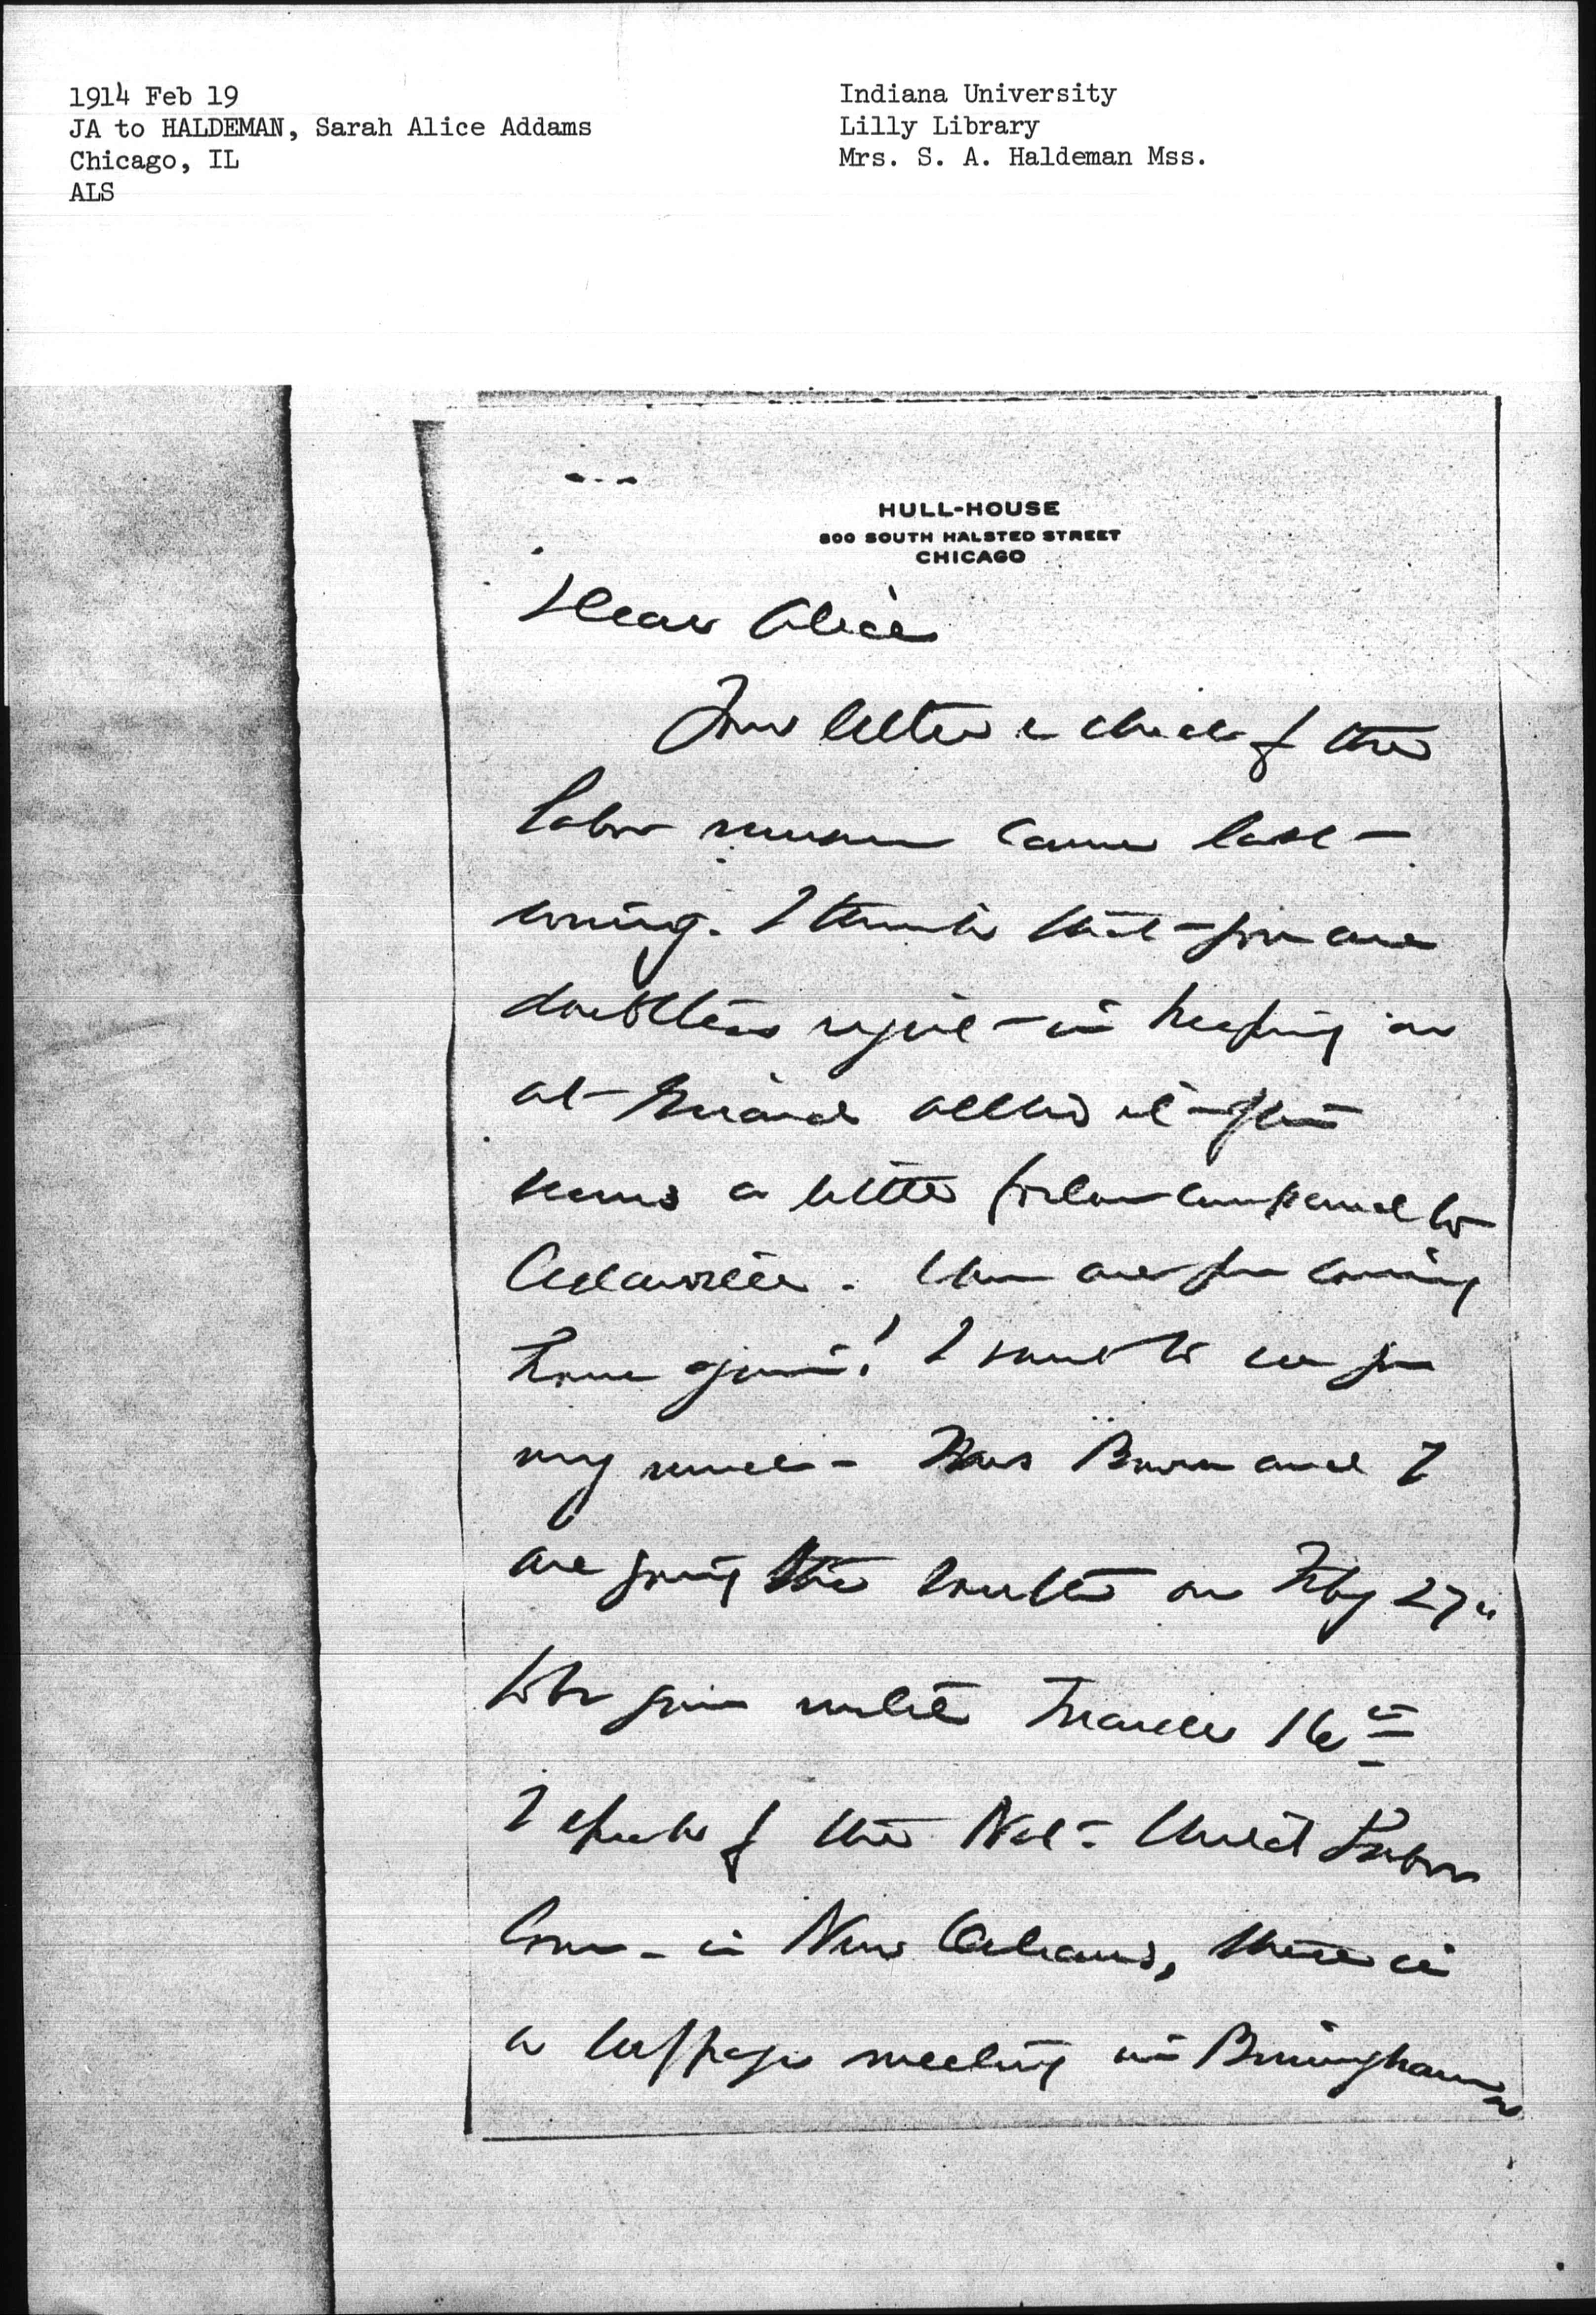 1914 Feb 19
JA to HALDEMAN, Sarah Alice Addams
Chicago, IL
ALS
Indiana University
Lilly Library
Mrs. S. A. Haldeman Mss.
HULL-HOUSE
800 SOUTH HALSTED STREET
CHICAGO
Dear Alice
Your letter & check for the
labor came last
evening. I think that you are
doubtless right in keeping on
at Girard altho it
seems a little forlorn compared to
Cedarville. When are you coming
home again! I want to see you
very much - Miss Brown and I
are going South on Feby 27"
to be gone until March 16th
I speak for the Nat- Child Labor
Com- in New Orleans, there is
a suffrage meeting in Birmingham